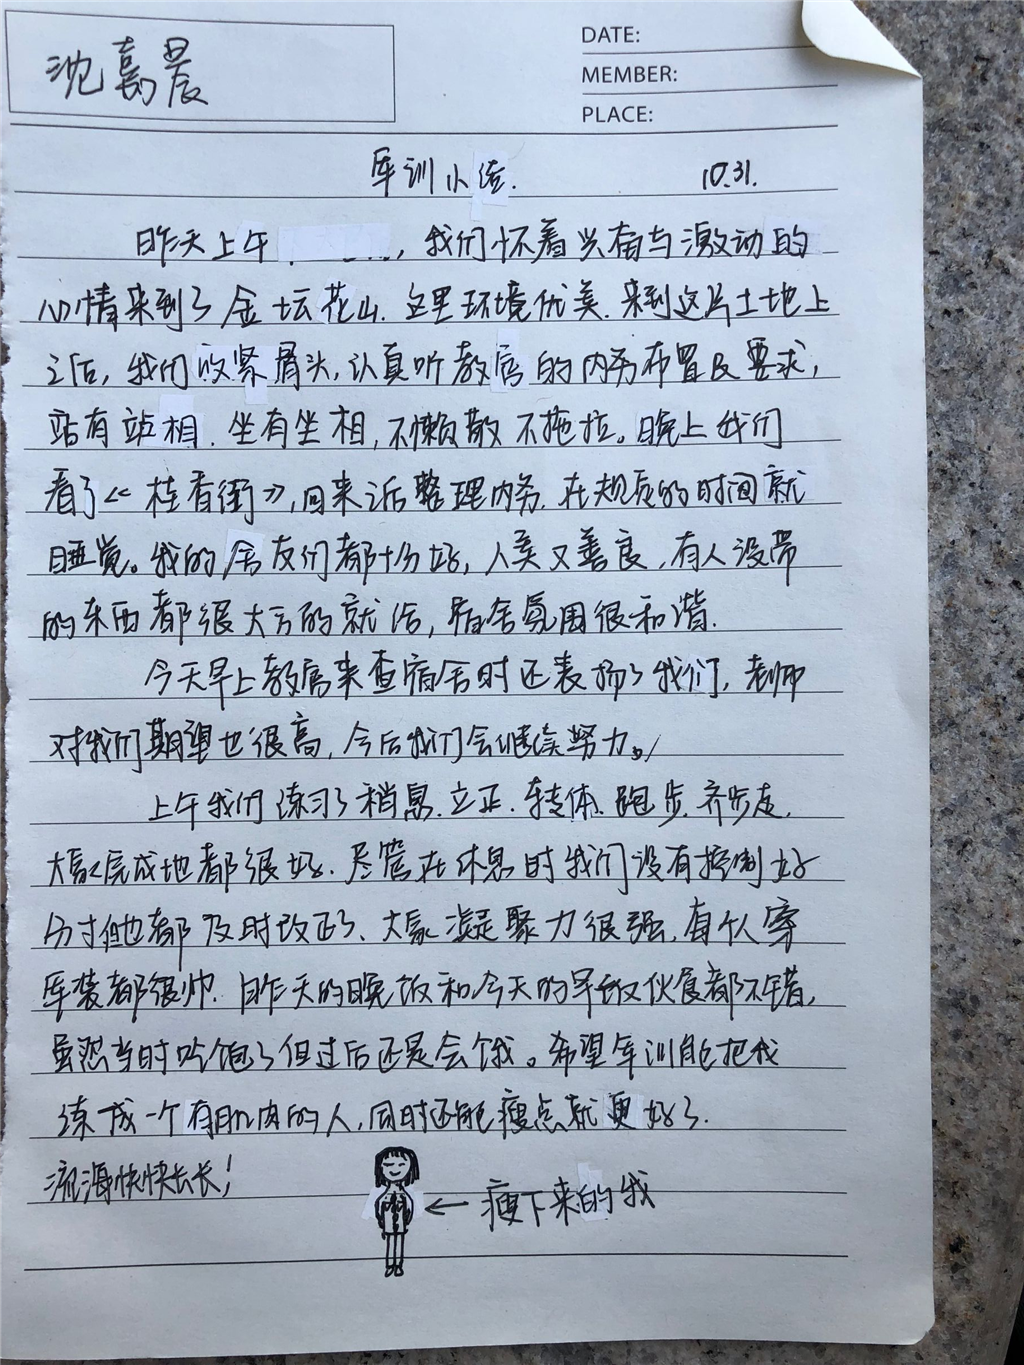 沈嘉晨
DATE:
MEMBER:
PLACE:
军训小结. 10.31.
昨天上午 ，我们怀着兴奋与激动的
心情来到了金坛花山.这里环境优美.来到这片土地上
之后，我们收紧骨头，认真听教官的内务布置及要求，
站有站相.坐有坐相，不懒散不拖拉。晚上我们
看了《桂香街》，回来之后整理内务.在规定的时间就
睡觉。我的舍友们都十分好，人美又善良，有人没带
的东西都很大方的就给，宿舍氛围很和谐.
今天早上教官来查宿舍时还表扬了我们，老师
对我们期望也很高，今后我们会继续努力。
上午我们练习了稍息.立正.转体.跑步.齐步走.
大家完成地都很好.尽管在休息时我们没有控制好
分寸但也都及时改正了、大家凝聚力很强，每个人穿
军装都很帅.昨天的晚饭和今天的早饭伙食都不错，
虽然当时吃饱了但过后还是会饿。希望军训能把我
练成一个有肌肉的人，同时还能瘦点就更好了.
流海快快长长！
← 瘦下来的我